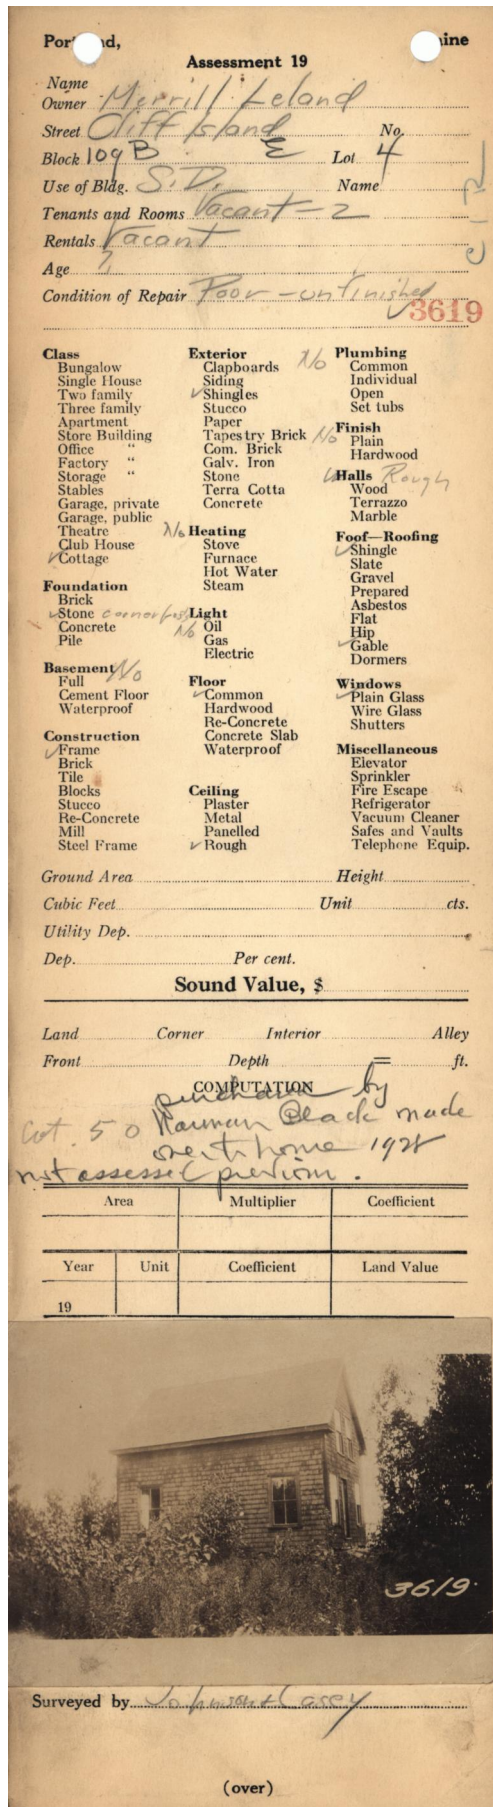 Portland, Maine
Assessment 19
Name
Owner Merrill Leland
Street Cliff Island No.
Block 109B E Lot 4
Use of Bldg. S.D. Name
Tenants and Rooms Vacant - 2
Rentals Vacant
Age ?
Condition of Repair Poor - unfinished
3619
Class
Bungalow
Single House
Two family
Three family
Apartment
Store Building
Office "
Factory "
Storage "
Stables
Garage, private
Garage, public
Theatre
Club House
✓Cottage
Foundation
Brick
✓Stone corner
Concrete
Pile
Basement No
Full
Cement Floor
Waterproof
Construction
✓Frame
Brick
Tile
Blocks
Stucco
Re-Concrete
Mill
Steel Frame
Exterior
Clapboards
Siding
✓Shingles
Stucco
Paper
Tapestry Brick
Com. Brick
Galv. Iron
Stone
Terra Cotta
Concrete
No Heating
Stove
Furnace
Hot Water
Steam
Light
No Oil
Gas
Electric
Floor
✓Common
Hardwood
Re-Concrete
Concrete Slab
Waterproof
Ceiling
Plaster
Metal
Panelled
✓Rough
No Plumbing
Common
Individual
Open
Set tubs
No Finish
Plain
Hardwood
✓Halls Rough
Wood
Terrazzo
Marble
Foof—Roofing
✓Shingle
Slate
Gravel
Prepared
Asbestos
Flat
Hip
✓Gable
Dormers
Windows
✓Plain Glass
Wire Glass
Shutters
Miscellaneous
Elevator
Sprinkler
Fire Escape
Refrigerator
Vacuum Cleaner
Safes and Vaults
Telephone Equip.
Ground Area Height
Cubic Feet Unit cts.
Utility Dep.
Dep. Per cent.
Sound Value, $
Land Corner Interior Alley
Front Depth = ft.
COMPUTATION
purchase by
Cot. 50 Norman Black made
over to home 1928
not assessed previous.
Area Multiplier Coefficient
Year Unit Coefficient Land Value
19
3619.
Surveyed by Johnson & Casey
(over)